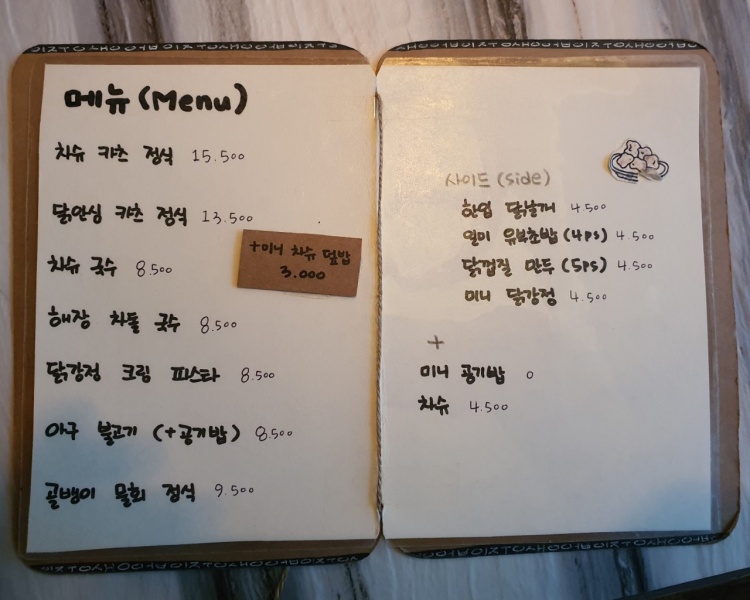 메뉴 (Menu)
차슈 카츠 정식 15.500
닭안심 카츠 정식 13.500
+미니 차슈 덮밥
3.000
차슈 국수 8.500
해장 차돌 국수 8.500
닭강정 크림 파스타 8.500
아구 불고기 (+공기밥) 8.500
골뱅이 물회 정식 9.500
사이드 (side)
한입 닭날개 4.500
일미 유부초밥 (4ps) 4.500
닭껍질 만두 (5ps) 4.500
미니 닭강정 4.500
+
미니 공기밥 0
차슈 4.500